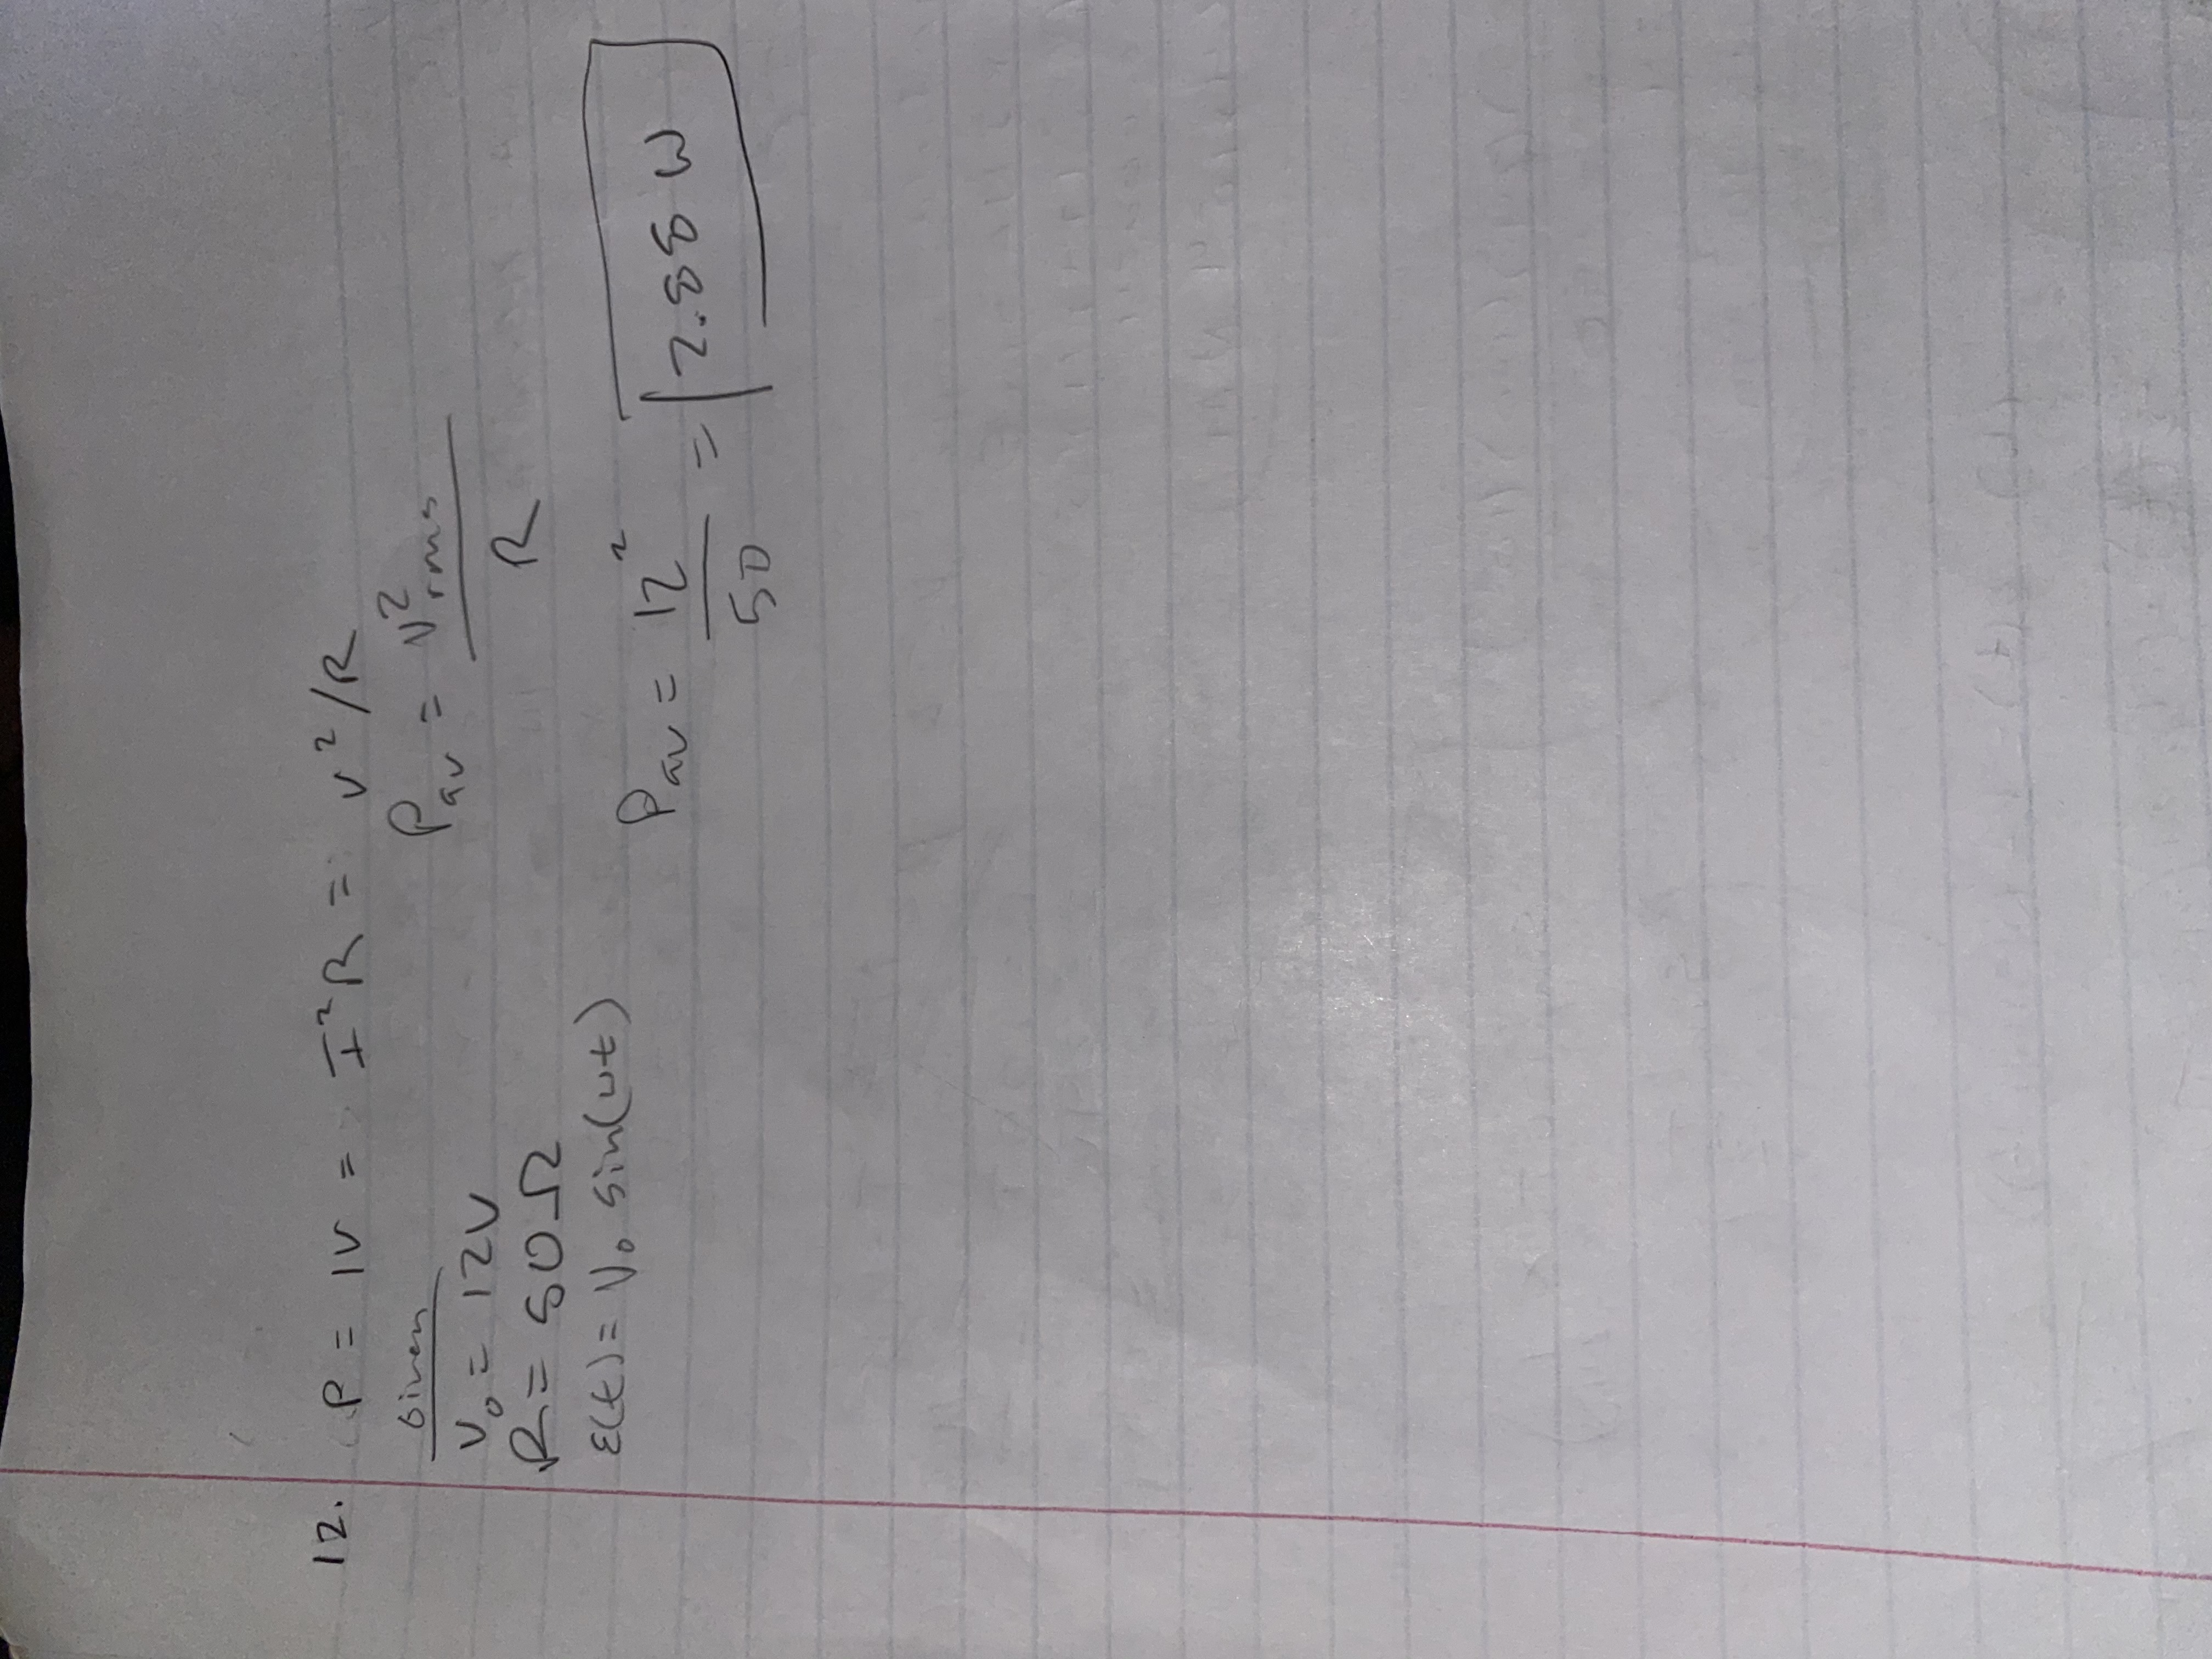 12. P = IV = I²R = V²/R
Given
V₀ = 12V
R = 50Ω
ε(t) = V₀ sin(ωt)
P_av = V²_rms / R
P_av = 12² / 50 = 2.88 W